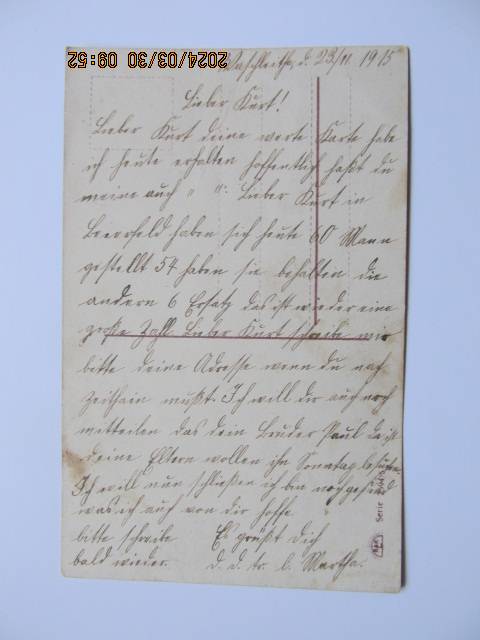 2024/03/30 09:52
Waschleithe, d. 23/11 1915
Lieber Kurt!
Lieber Kurt deine werte Karte habe
ich heute erhalten hoffentlich hast du
meine auch " ". Lieber Kurt in
Beierfeld haben sich heute 60 Mann
gestellt 54 haben sie behalten die
andern 6 Ersatz das ist wieder eine
große Zahl. Lieber Kurt schreibe mir
bitte deine Adresse wenn du nach
Zeithain mußt. Ich will dir auch noch
mitteilen das dein Bruder Paul da ist
deine Eltern wollen ihn Sonntag besuchen.
Ich will nun schließen ich bin noch gesund
was ich auch von dir hoffe "
bitte schreibe Es grüßt dich
bald wieder. d. d. tr. l. Martha.
Serie